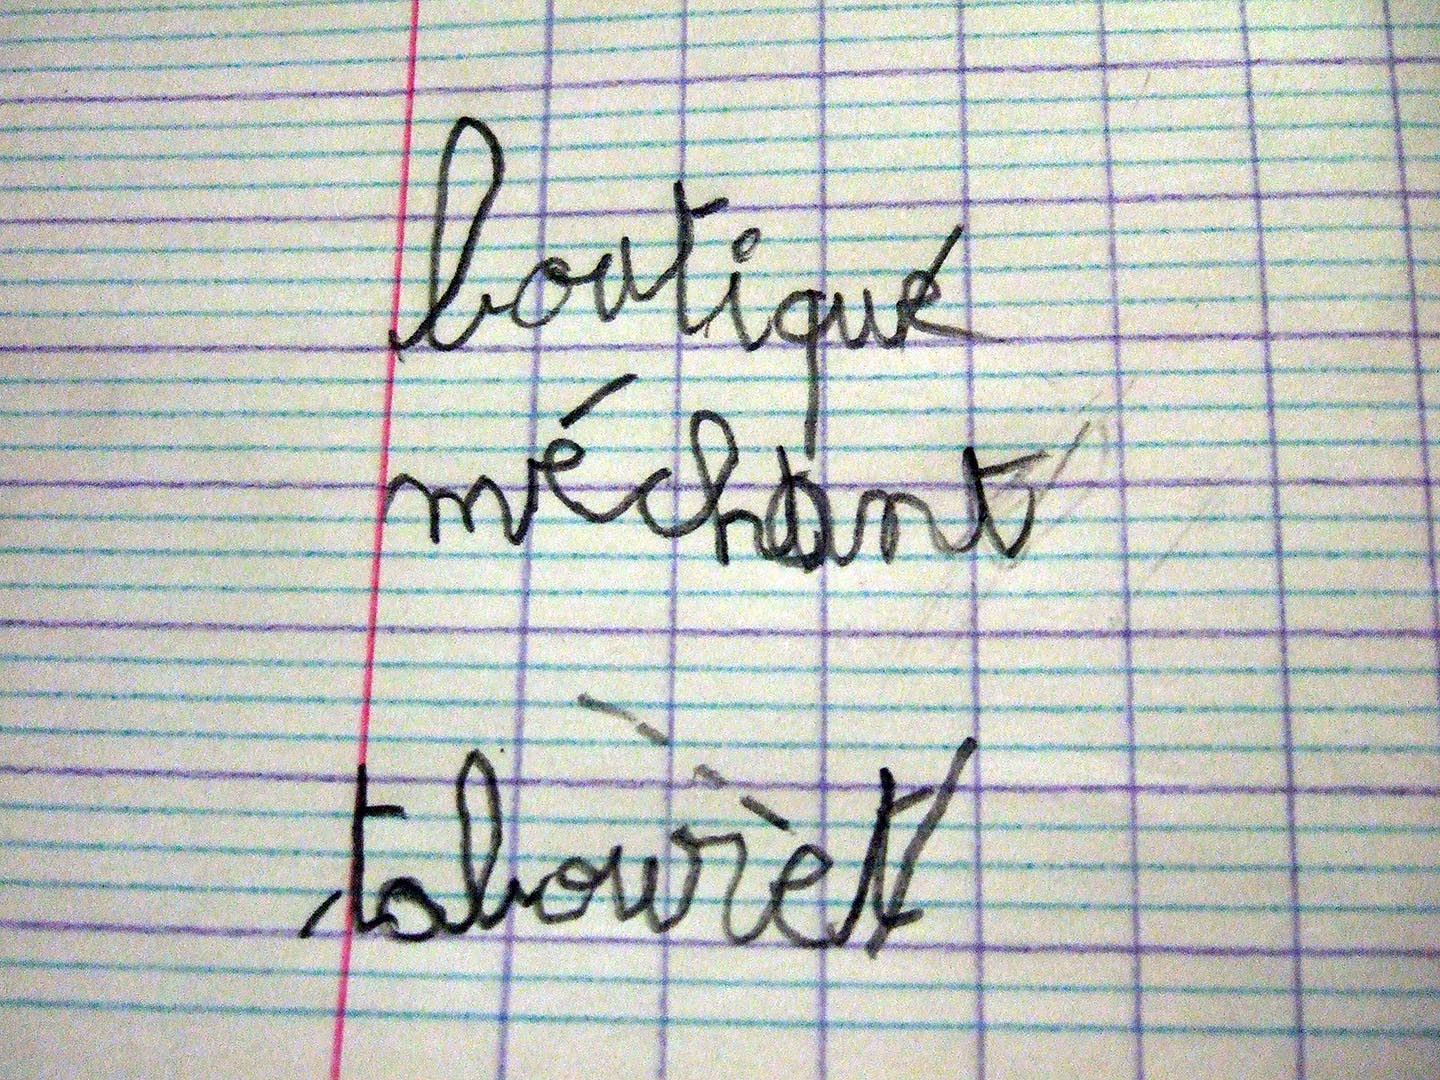 boutique
méchant
tabourèt